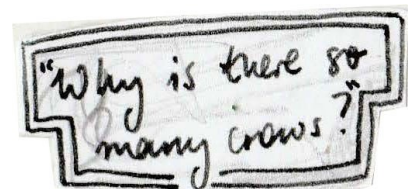 "Why is there so
many crows?"